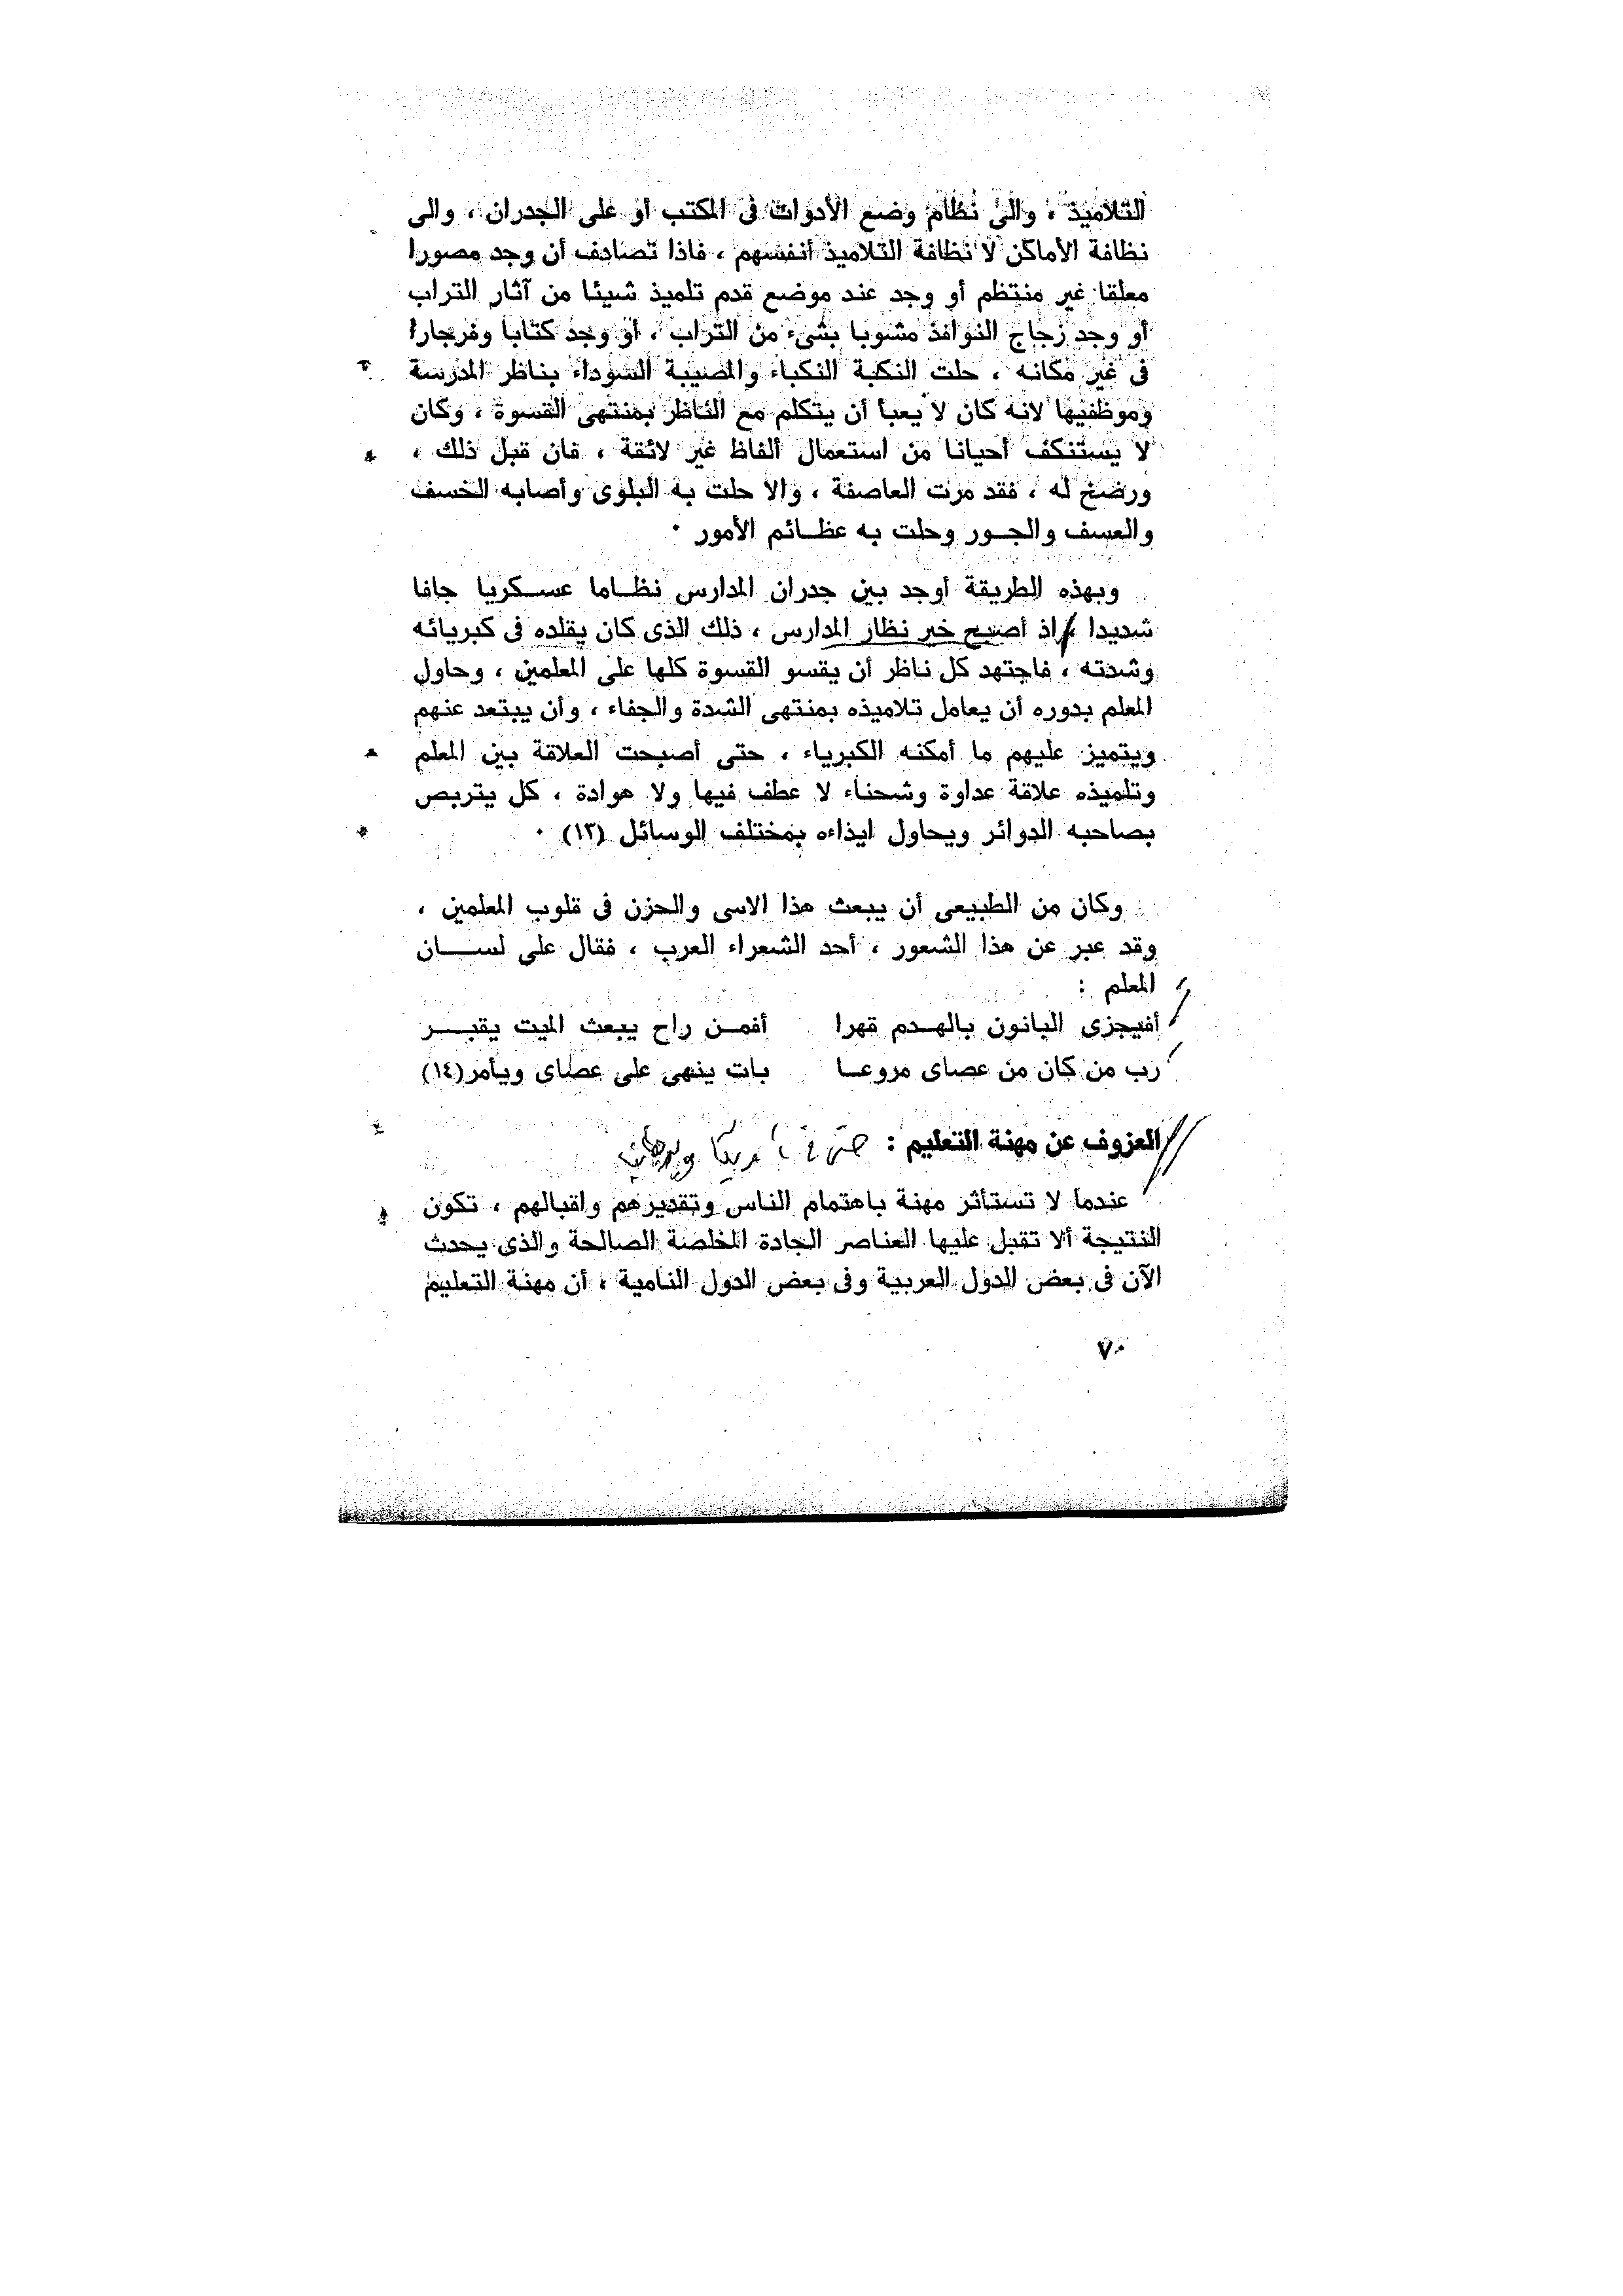 التلاميذ ، والى نظام وضع الأدوات فى المكتب أو على الجدران ، والى
نظافة الأماكن لا نظافة التلاميذ أنفسهم ، فاذا تصادف أن وجد مصورا
معلقا غير منتظم أو وجد عند موضع قدم تلميذ شيئا من آثار التراب
أو وجد زجاج النوافذ مشوبا بشىء من التراب ، أو وجد كتابا وفرجارا
فى غير مكانه ، حلت النكبة النكباء والمصيبة السوداء بناظر المدرسة
وموظفيها لانه كان لا يعبأ أن يتكلم مع الناظر بمنتهى القسوة ، وكان
لا يستنكف أحيانا من استعمال ألفاظ غير لائقة ، فان قبل ذلك ،
ورضخ له ، فقد مرت العاصفة ، والا حلت به البلوى وأصابه الخسف
والعسف والجــور وحلت به عظــائم الأمور ٠
وبهذه الطريقة أوجد بين جدران المدارس نظــاما عســكريا جافا
شديدا ، اذ أصبح خير نظار المدارس ، ذلك الذى كان يقلده فى كبريائه
وشدته ، فاجتهد كل ناظر أن يقسو القسوة كلها على المعلمين ، وحاول
المعلم بدوره أن يعامل تلاميذه بمنتهى الشدة والجفاء ، وأن يبتعد عنهم
ويتميز عليهم ما أمكنه الكبرياء ، حتى أصبحت العلاقة بين المعلم
وتلميذه علاقة عداوة وشحناء لا عطف فيها ولا هوادة ، كل يتربص
بصاحبه الدوائر ويحاول ايذاءه بمختلف الوسائل (١٣) ٠
وكان من الطبيعى أن يبعث هذا الاسى والحزن فى قلوب المعلمين ،
وقد عبر عن هذا الشعور ، أحد الشعراء العرب ، فقال على لســــان
المعلم :
أفيجزى البانون بالهــدم قهرا أفمــن راح يبعث الميت يقبـــر
رب من كان من عصاى مروعــا بات ينهى على عصاى ويأمر(١٤)
العزوف عن مهنة التعليم : حتى في أمريكا
عندما لا تستأثر مهنة باهتمام الناس وتقديرهم واقبالهم ، تكون
النتيجة ألا تقبل عليها العناصر الجادة المخلصة الصالحة والذى يحدث
الآن فى بعض الدول العربية وفى بعض الدول النامية ، أن مهنة التعليم
٧٠